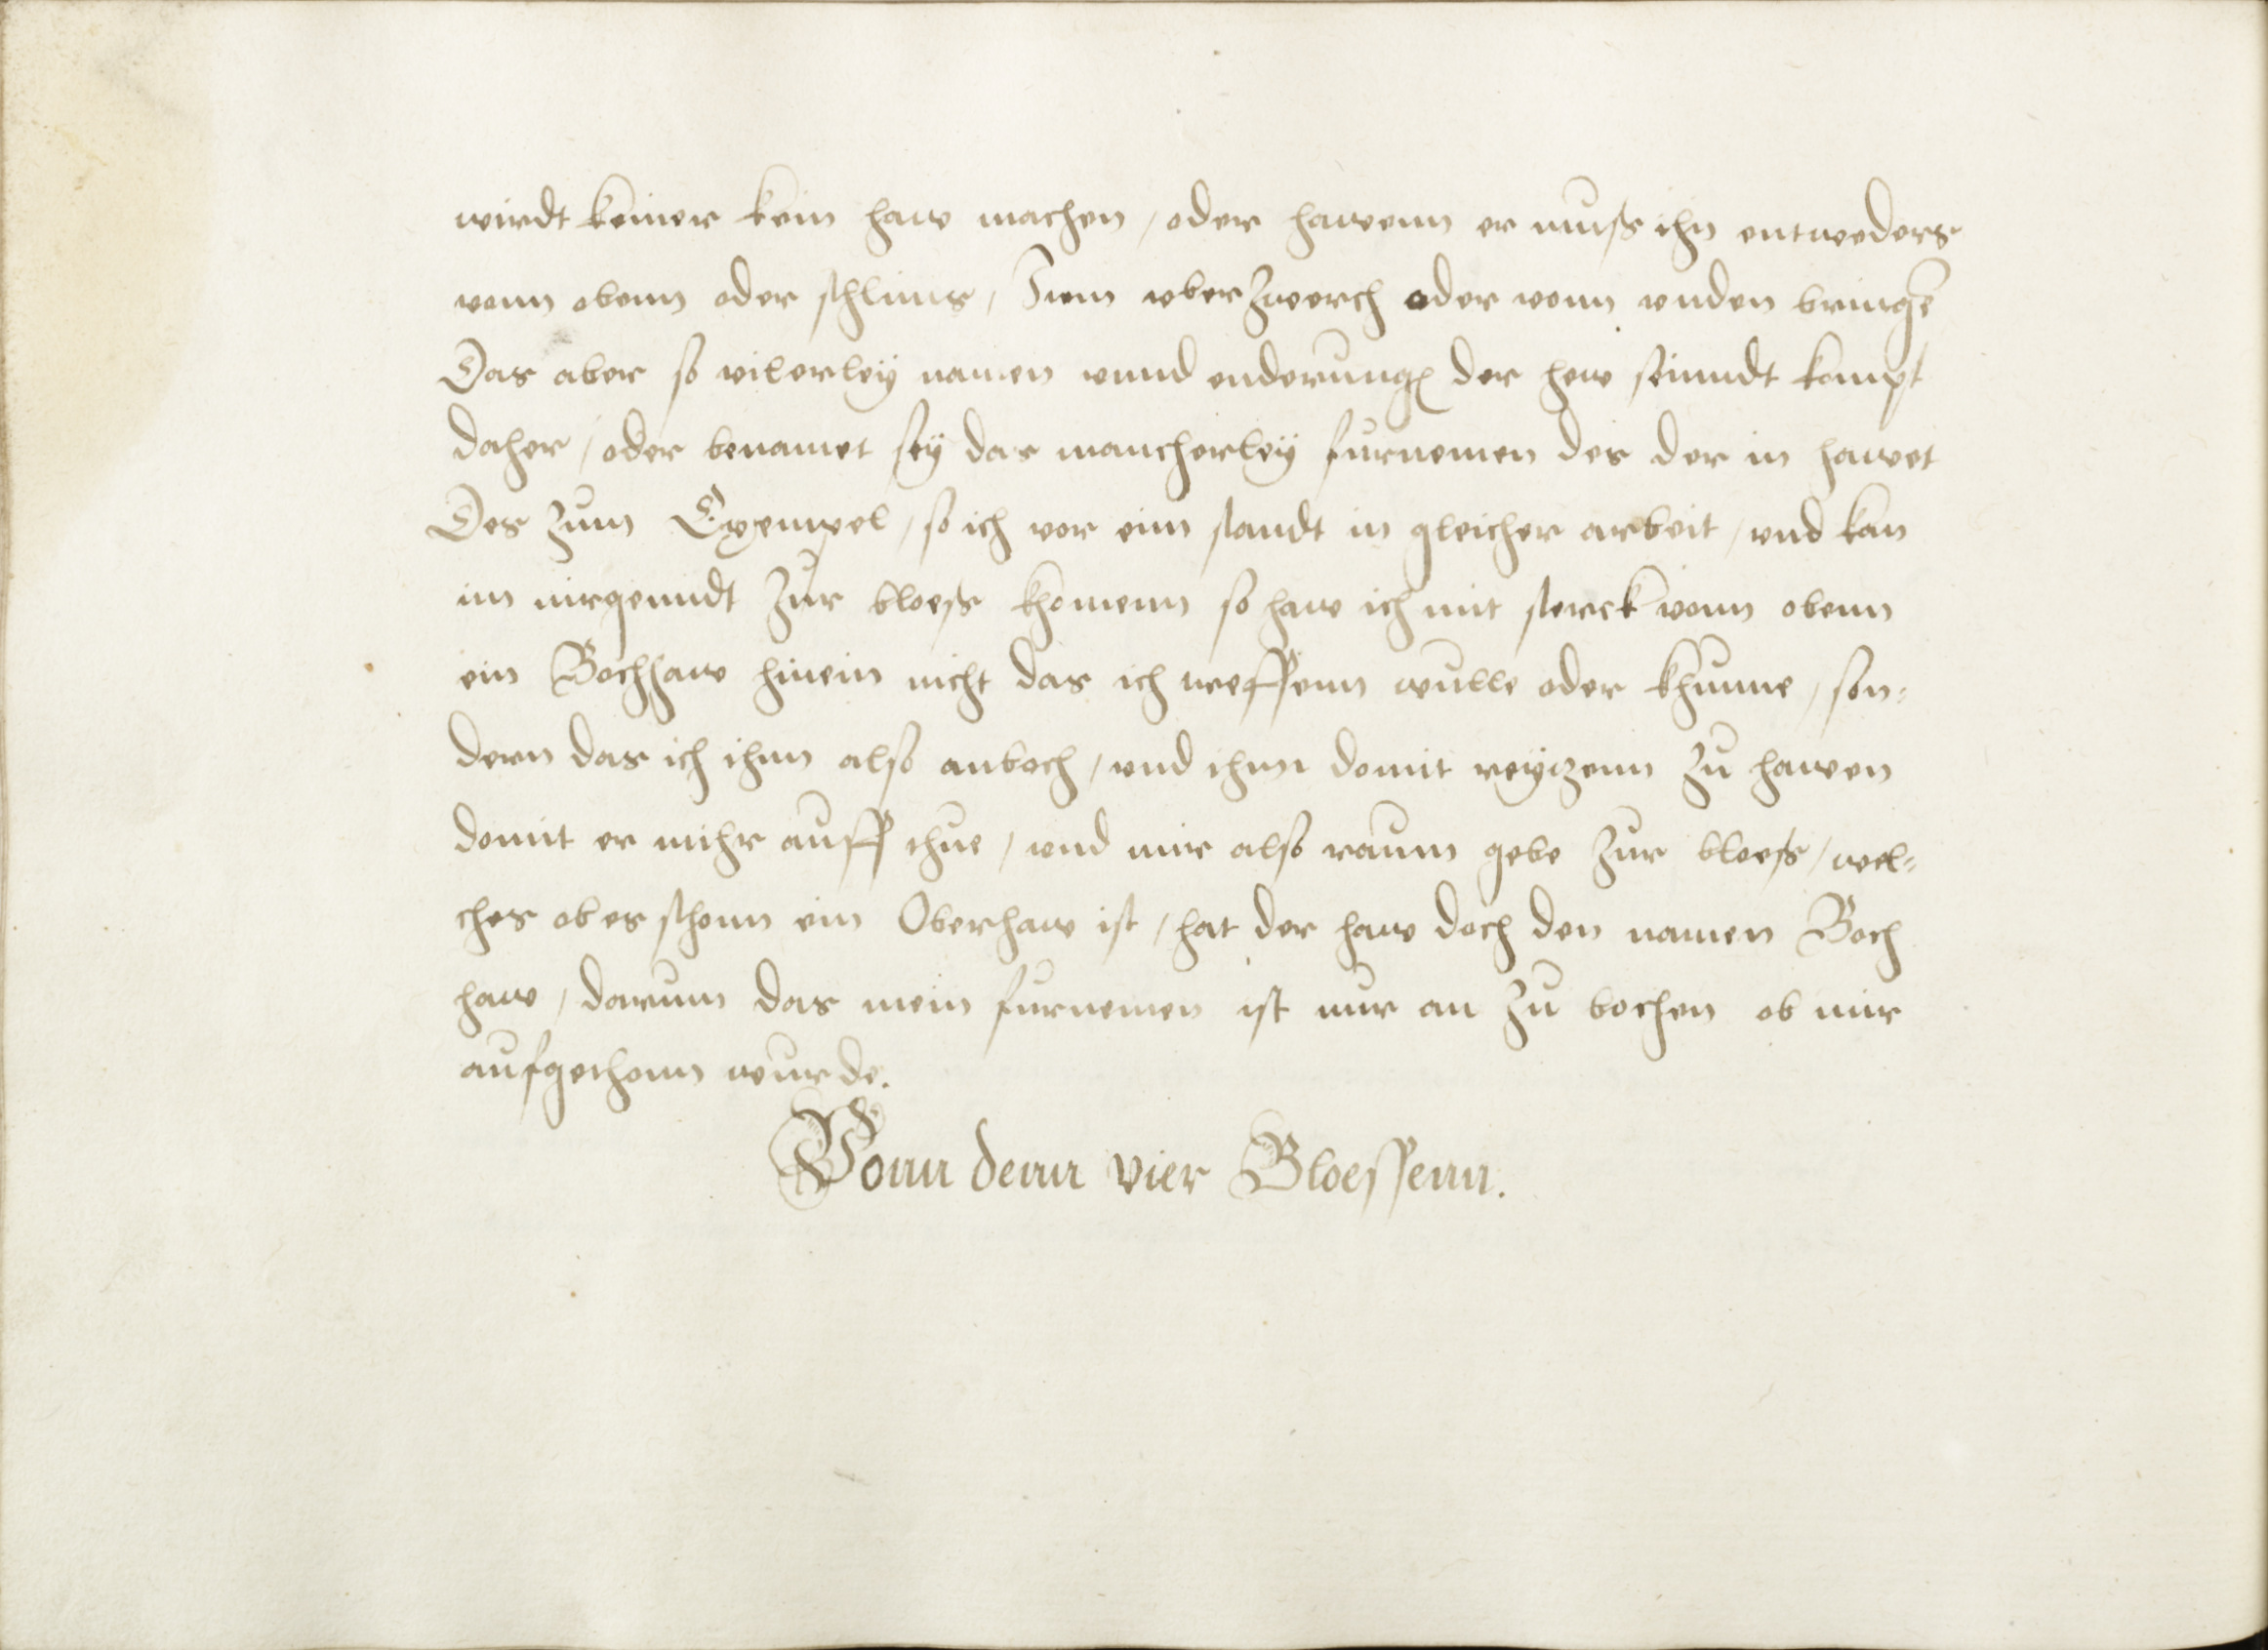 wirdt keiner kein haw machen / oder hawenn er muß ihn entweders
vonn obenn oder schlims / Item vber Zwerch oder vonn vnden bringē
Das aber so vilerley namen vnnd enderung der hew seinndt kompt
daher / oder benamet sey das mancherley furnemen des der in hawet
Des zum Exempel / so ich vor einn standt in gleicher arbeit / vnd kan
im nirgenndt zur bloeß khomenn so haw ich mit sterck vonn obenn
ein Bochhaw hinein nicht das ich treffenn wulle oder khunne / son=
dern das ich ihnn also anboch / vnd ihnn domit reytzenn zu hawen
domit er mihr auff thue / vnd mir also raum gebe zur bloeß / wel=
ches ob es schonn ein Oberhaw ist / hat der haw doch den namen Boch
haw / darum das mein furnemen ist nur an zu bochen ob mir
aufgethonn wurde.
Vonn denn vier Bloessenn.